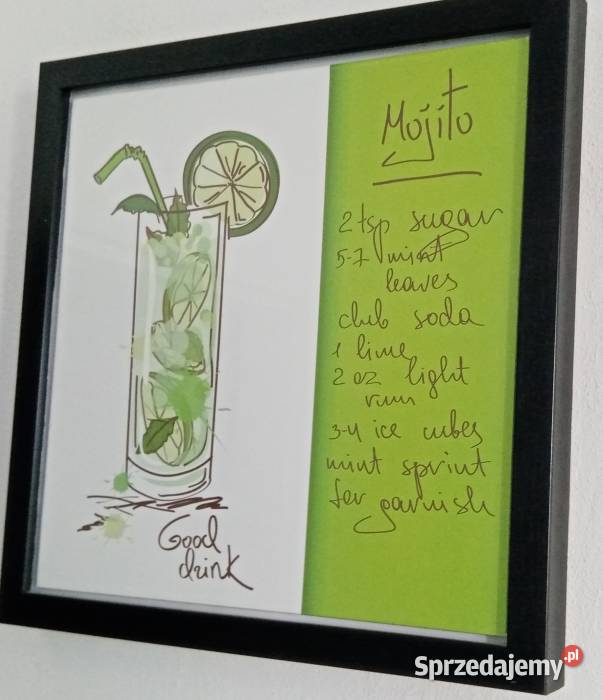 Mojito
2 tsp sugar
5-7 mint
leaves
club soda
1 lime
2 oz light
rum
3-4 ice cubes
mint sprint
for garnish
Good
drink
Sprzedajemy.pl